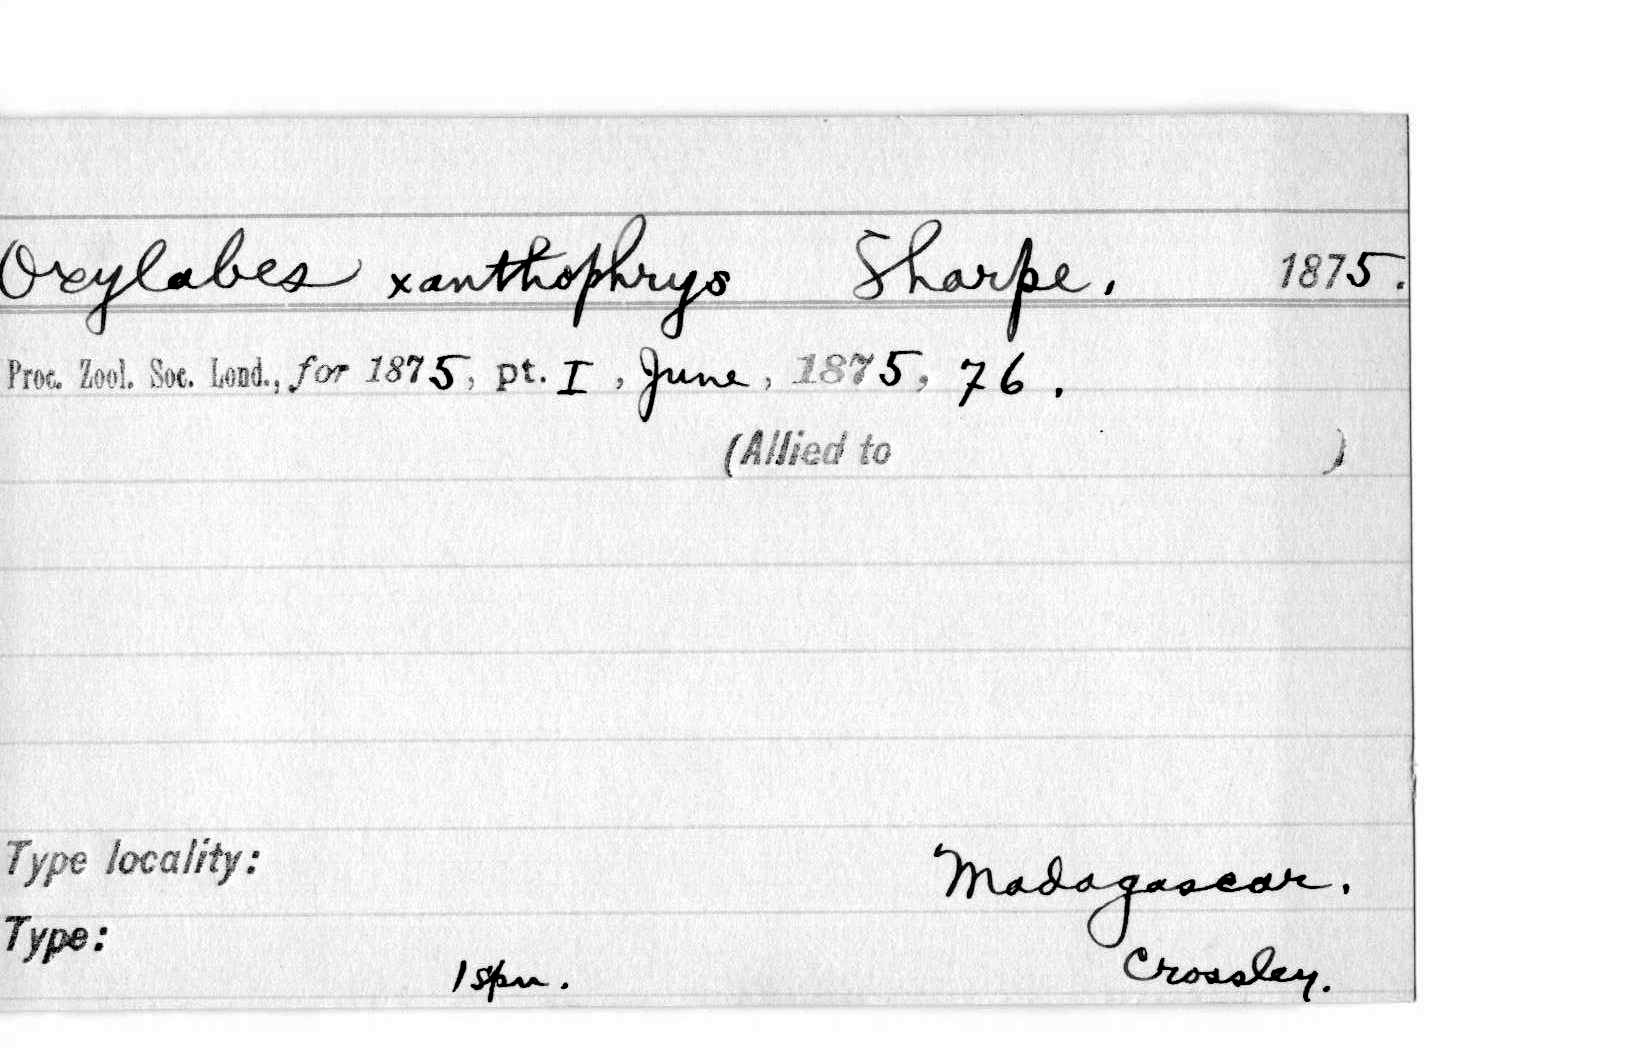 Oxylabes xanthophrys Sharpe. 1875.
Proc. Zool. Soc. Lond., for 1875, pt. I, June, 1875, 76.
(Allied to )
Type locality: Madagascar.
Type: 1 spn. Crossley.